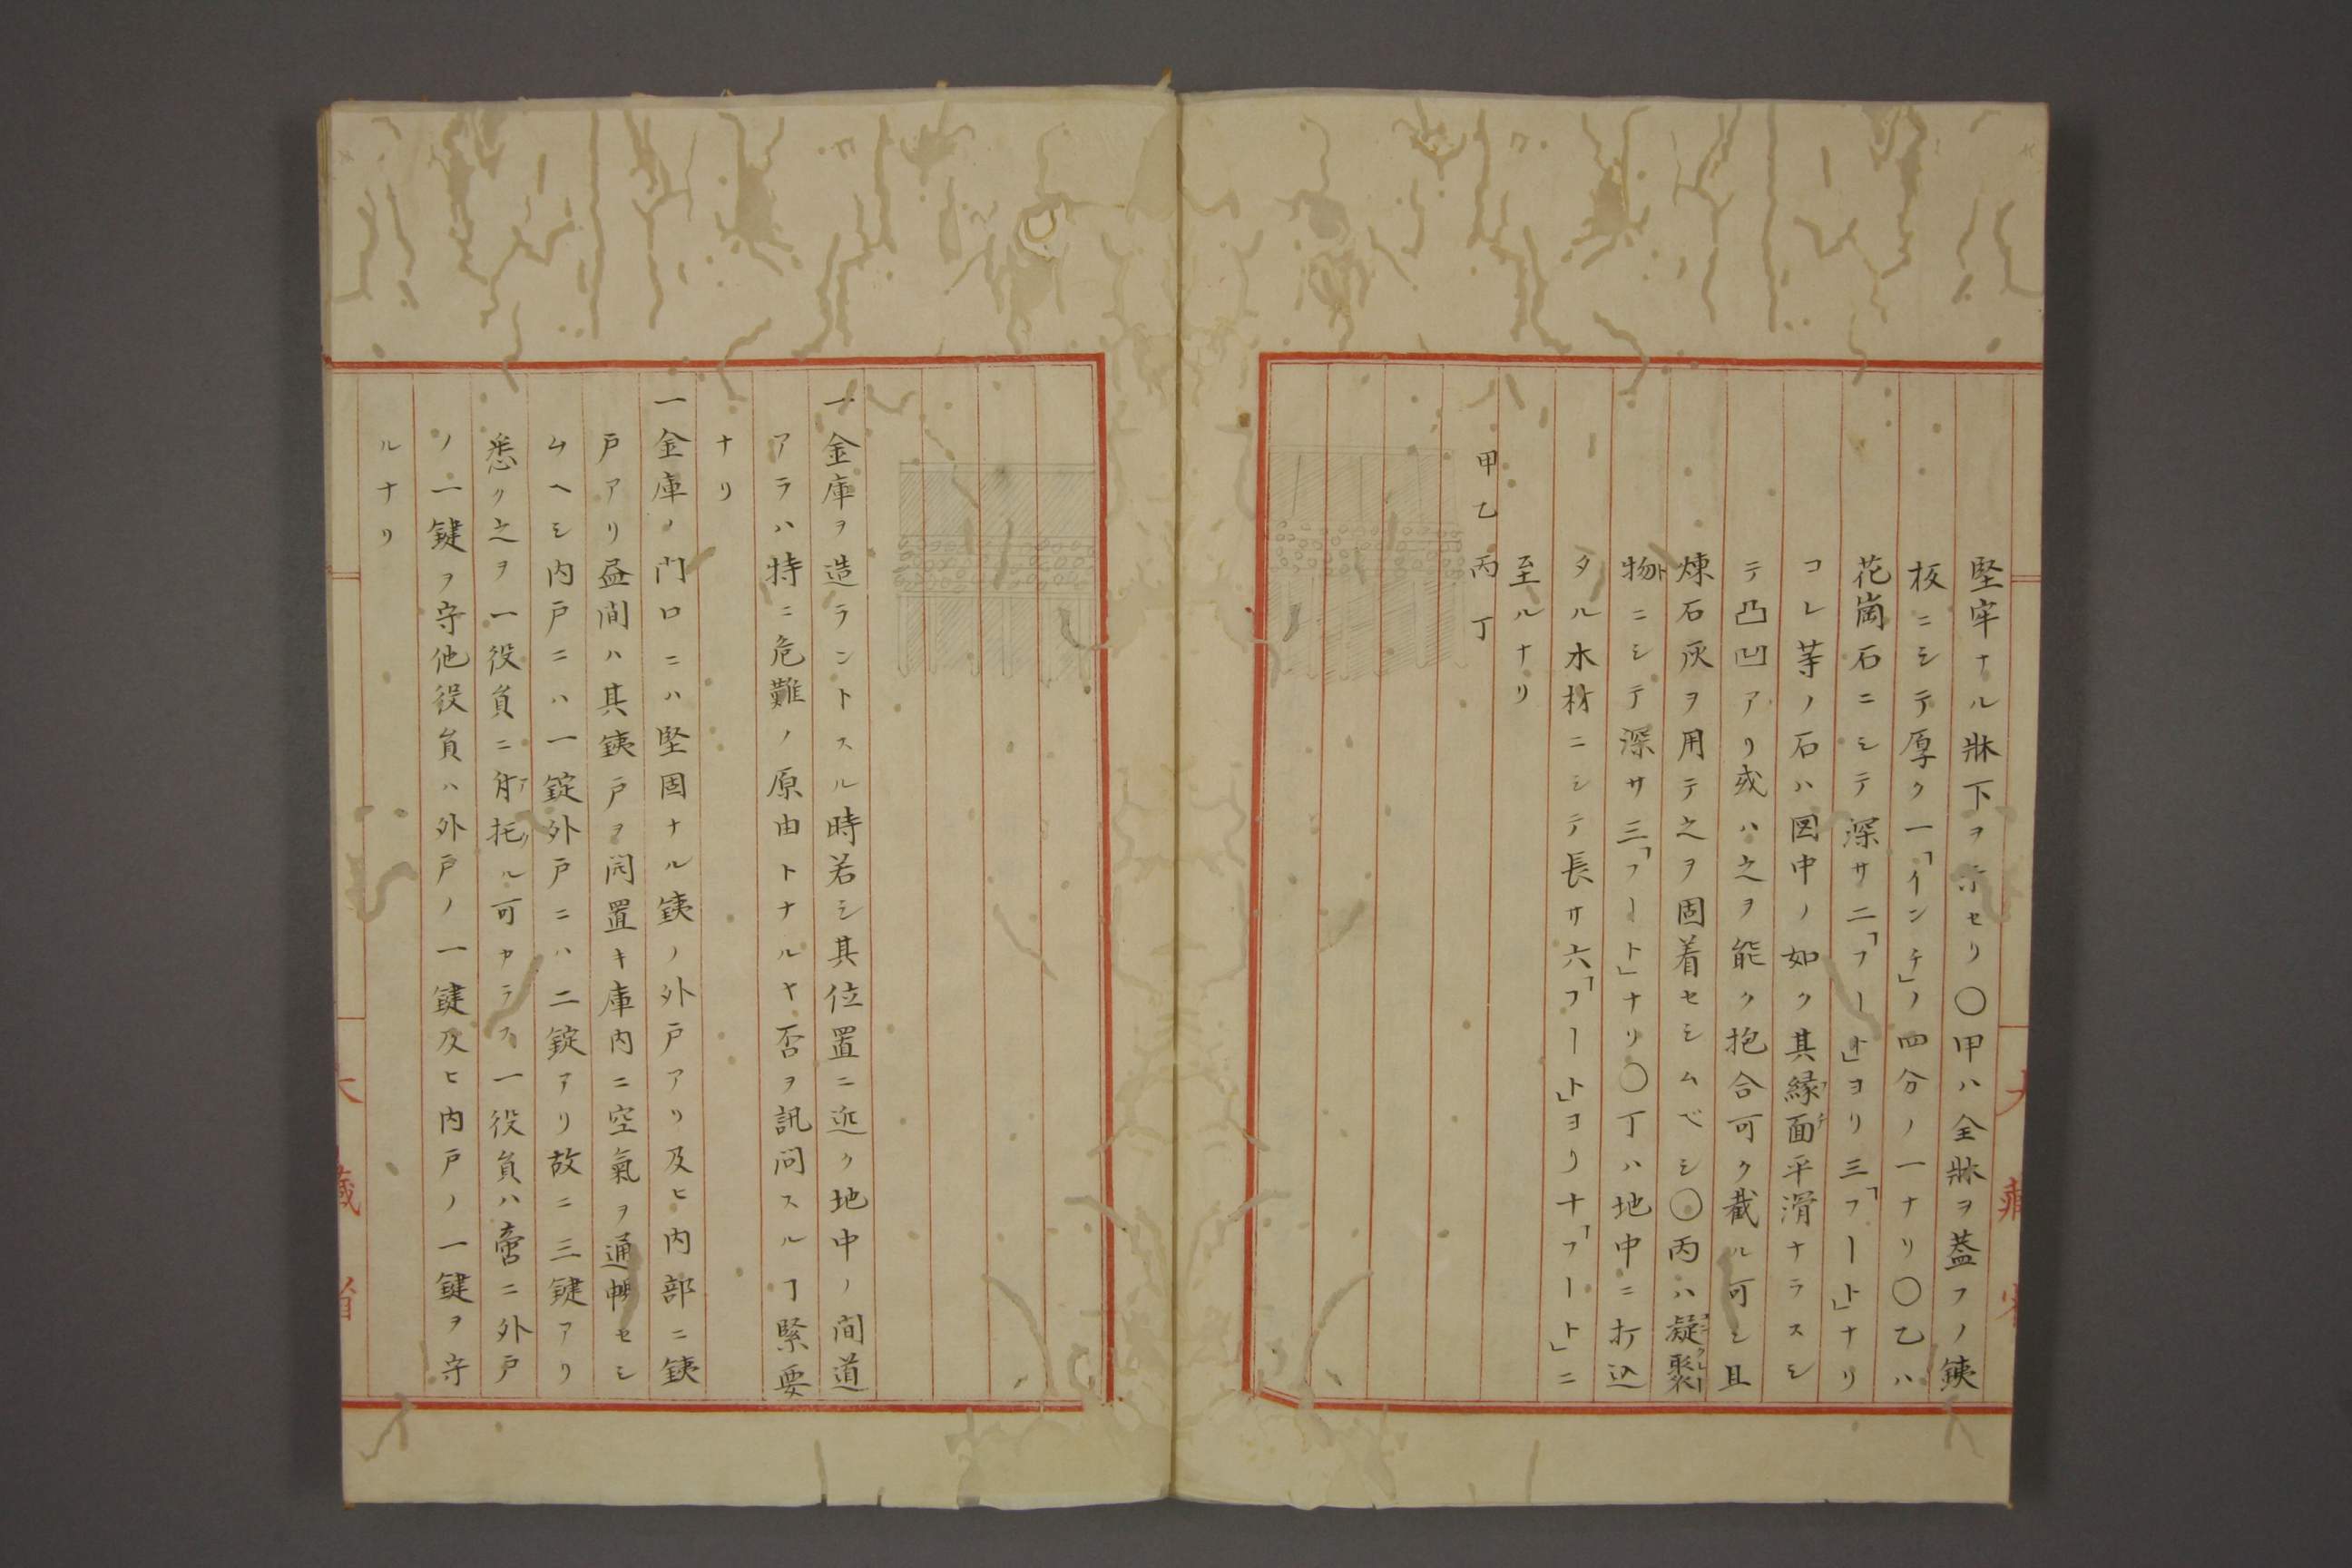 堅牢ナル牀下ヲ示セリ〇甲ハ全牀ヲ蓋フノ銕
板ニシテ厚ク一「インチ」ノ四分ノ一ナリ〇乙ハ
花崗石ニシテ深サ二「フート」ヨリ三「フート」ナリ
コレ等ノ石ハ図中ノ如ク其縁面平滑ナラスシ
テ凸凹アリ或ハ之ヲ能ク抱合可ク截ル可シ且
煉石灰ヲ用テ之ヲ固着セシムベシ〇丙ハ凝聚
物ニシテ深サ三「フート」ナリ〇丁ハ地中ニ打込
タル木材ニシテ長サ六「フート」ヨリ十「フート」ニ
至ルナリ
甲乙丙丁
大藏省
一金庫ヲ造ラントスル時若シ其位置ニ近ク地中ノ間道
アラハ特ニ危難ノ原由トナルヤ否ヲ訊問スルヿ緊要
ナリ
一金庫ノ門口ニハ堅固ナル銕ノ外戸アリ及ヒ内部ニ銕
戸アリ昼間ハ其銕戸ヲ開置キ庫内ニ空氣ヲ通暢セシ
ムヘシ内戸ニハ一錠外戸ニハ二錠アリ故ニ三鍵アリ
悉ク之ヲ一役員ニ附托ル可カラス一役員ハ啻ニ外戸
ノ一鍵ヲ守他役員ハ外戸ノ一鍵及ヒ内戸ノ一鍵ヲ守
ルナリ
大藏省